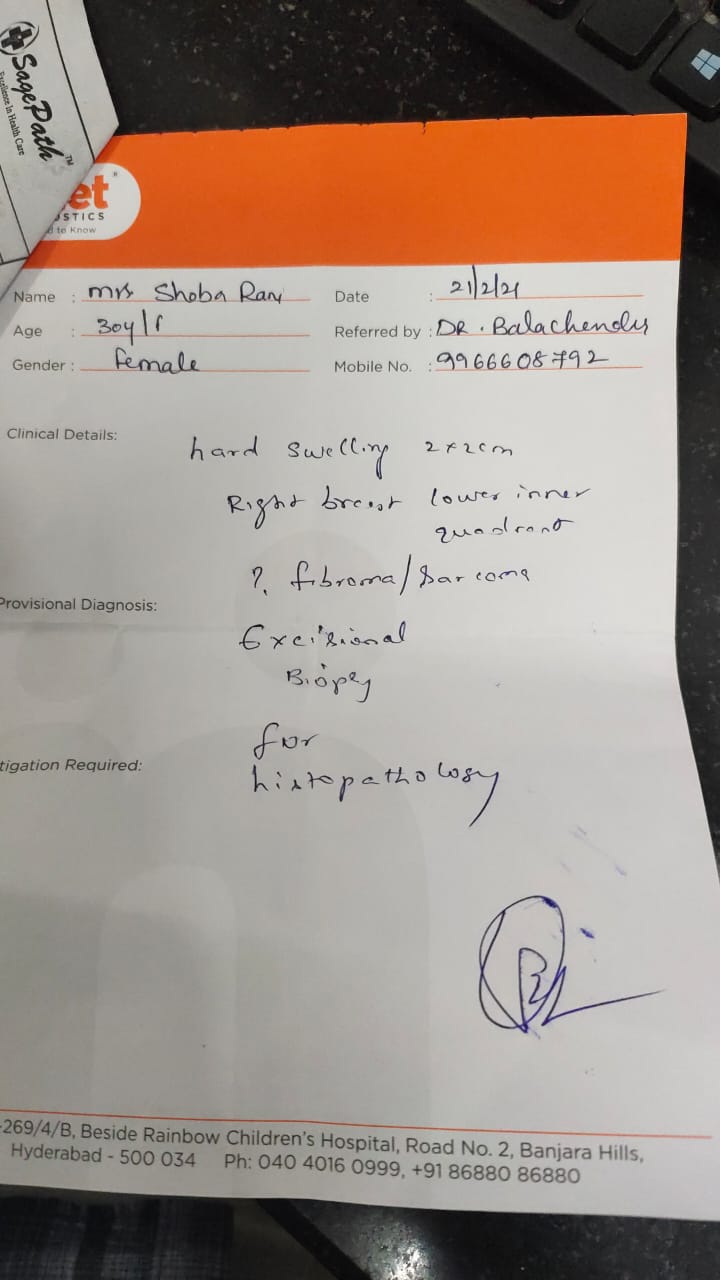 SagePath™
Excellence In Health Care
et®
OSTICS
d to Know
Name : mrs Shoba Rani
Date : 21/2/21
Age : 30y/f
Referred by : DR. Balachendu
Gender : female
Mobile No. : 9966608792
Clinical Details:
hard swelling 2x2cm
Right breast lower inner
quadrant
? fibroma/sarcoma
Provisional Diagnosis:
Excisional
Biopsy
for
tigation Required:
histopathology
-269/4/B, Beside Rainbow Children's Hospital, Road No. 2, Banjara Hills,
Hyderabad - 500 034 Ph: 040 4016 0999, +91 86880 86880